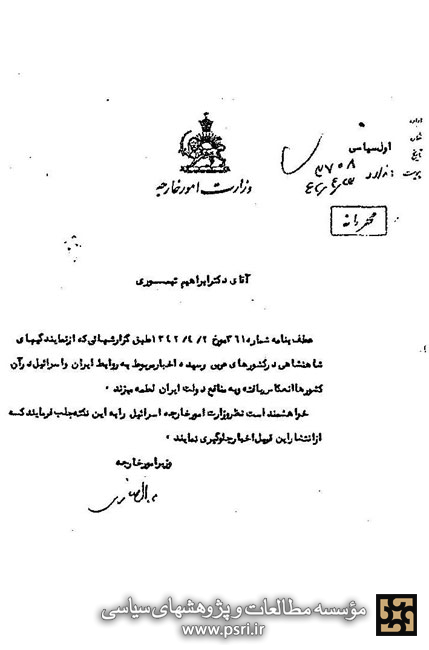 اداره
شماره
تاریخ
پیوست
اول سیاسی
۳۷۰۸
ندارد
وزارت امور خارجه
محرمانه
آقای دکتر ابراهیم تیموری
عطف بنامه شماره ۳۶۱ مورخ ۱۳۴۲/۴/۲ طبق گزارشهائی که از نمایندگیهای
شاهنشاهی در کشورهای عربی رسیده اخبار مربوط به روابط ایران و اسرائیل در آن
کشورها انعکاس یافته و به منافع دولت ایران لطمه میزند .
خواهشمند است نظر وزارت امور خارجه اسرائیل را به این نکته جلب فرمایند که
از انتشار این قبیل اخبار جلوگیری نمایند .
وزیر امور خارجه
مؤسسه مطالعات و پژوهشهای سیاسی
www.psri.ir